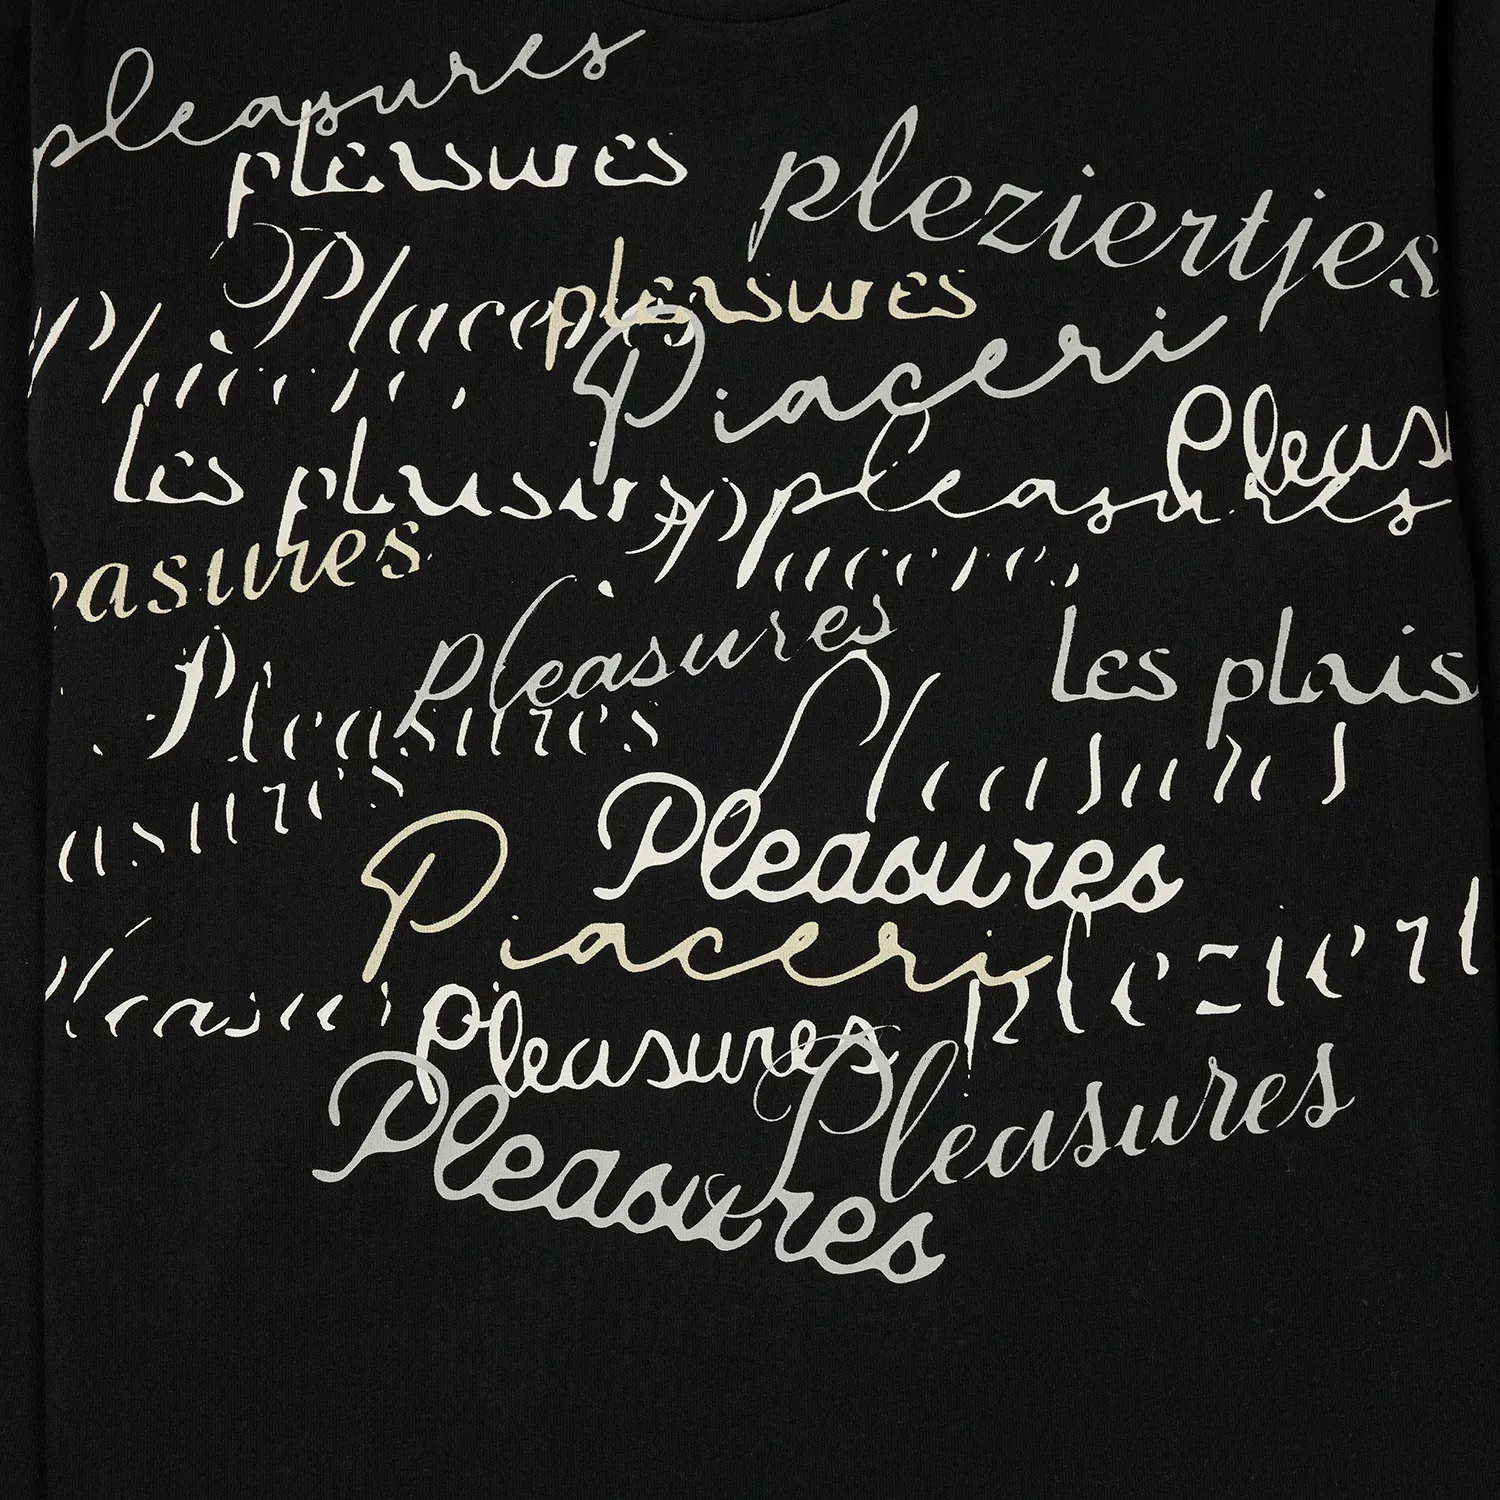 pleasures
pleasures
pleziertjes
Placeres
pleasures
Piaceri
Placeres
Pleas
les plaisirs
pleasures
Placeres
easures
Pleasures
les plais
Pleasures
Pleasures
asures
Pleasures
Piaceri
pleziert
Pleasures
Pleasures
Pleasures